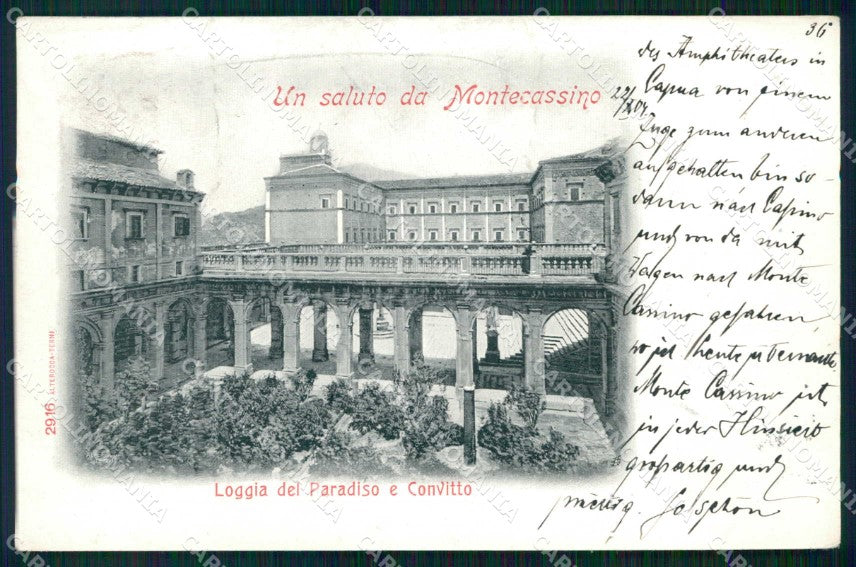 36
Un saluto da Montecassino
22/2 04
des Amphitheaters in
Capua von einem
Zuge zum anderen
aufgehalten bin so
dann nach Capino
und von da mit
Wagen nach Monte
Cassino gefahren,
wo ich heute übernachte
Monte Cassino ist
in jeder Hinsicht
großartig und
So schön
2916 ALTEROCCA-TERNI
Loggia del Paradiso e Convitto
CARTOLINOMANIA